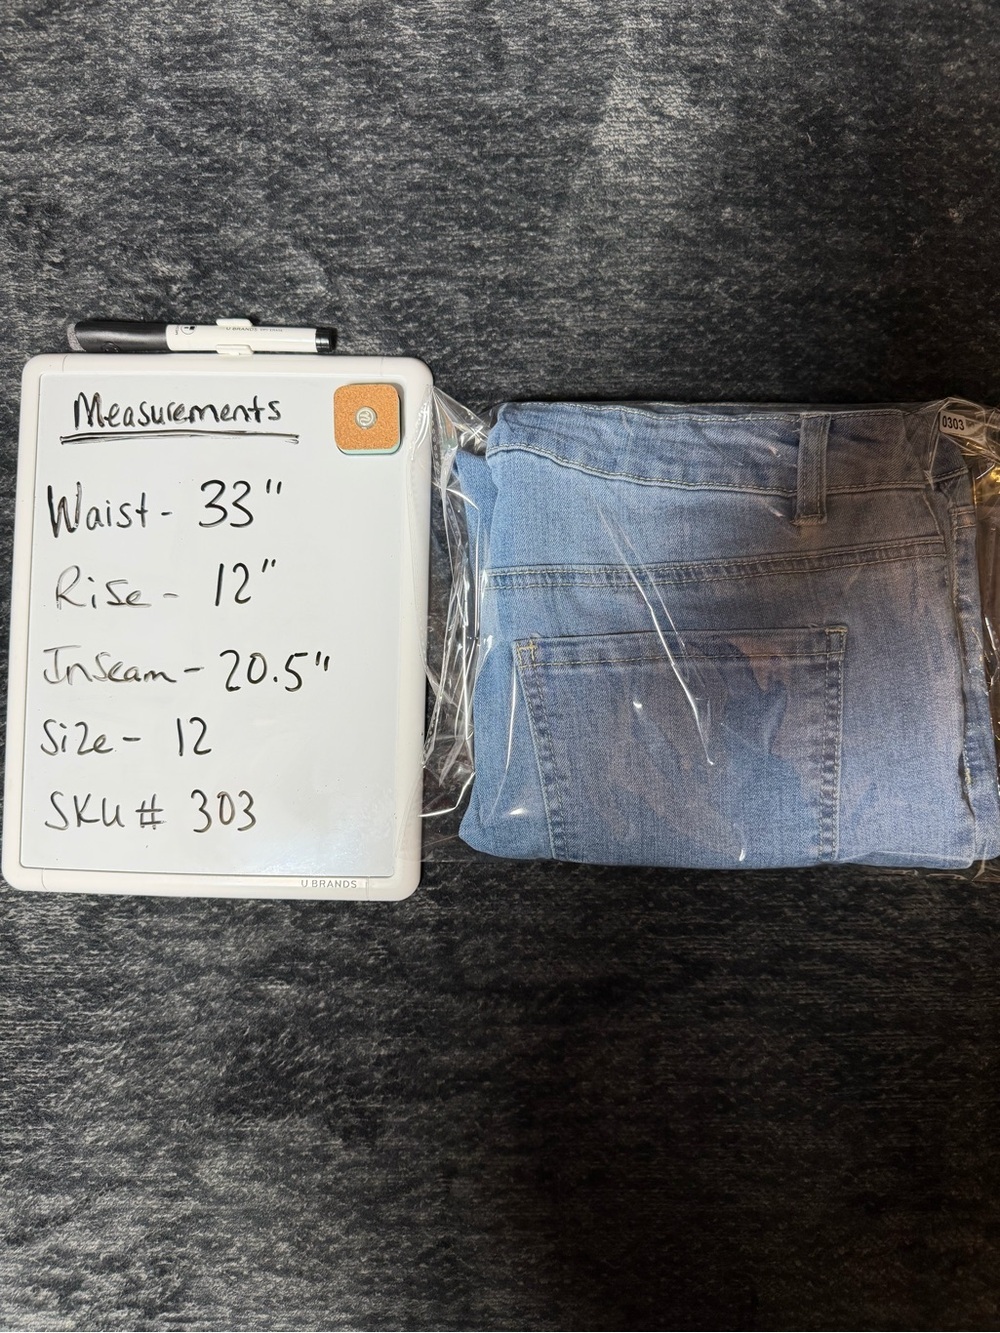 U BRANDS
Measurements
Waist - 33"
Rise - 12"
Inseam - 20.5"
Size - 12
SKU # 303
U BRANDS
0303